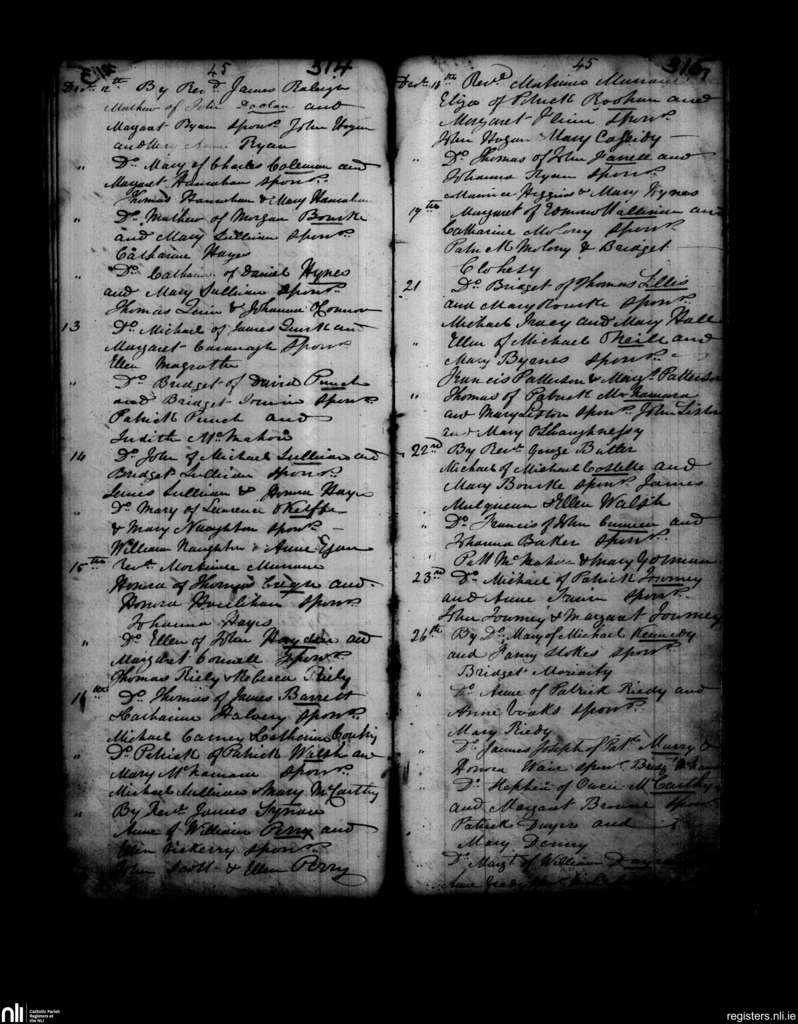 45 314
Decr. 12th By Revd. James Raleigh
Mathew of John Doolan and
Margaret Ryan sponrs. John Hogan
and Ryan
" Do. Mary of Charles Coleman and
Margaret Hanrahan sponrs.
Thomas Hanrahan & Mary Hanrahan
" Do. Mathew of Morgan Bourke
and Mary Sullivan sponrs.
Catharine Hayes
" Do. Catharine of Daniel Hynes
and Mary Sullivan sponrs.
Thomas Quin & Johanna OConnor
13 Do. Michael of James Quirk and
Margaret Cavanagh sponrs.
Ellen Magrath
" Do. Bridget of David Punch
and Bridget sponrs.
Patrick Punch and
Judith McMahon
14 Do. John of Michael Sullivan and
Bridget Sullivan sponrs.
James Sullivan & Honora Hayes
" Do. Mary of Laurence OKeeffe
& Mary Naughton sponrs. —
William Naughton & Anne Egan
15th Revd. Mortimer Murnane
Honora of Thomas and
Honora Hanlihan sponrs.
Johanna Hayes
" Do. Ellen of John Hayden and
Margaret Connell sponrs.
Thomas Riely & Rebecca Riely
16th Do. Thomas of James Barrett
Catharine sponrs.
Michael Carney & Catharine
" Do. Patrick of Patrick Walsh and
Mary McNamara sponrs.
Michael Sullivan & Mary McCarthy
" By Revd. James
Anne of William Perry and
Ellen Vickerry sponrs.
John Scott & Ellen Perry
45 315
Decr. 18th Revd. Mortimer Murnane
Eliza of Patrick and
Margaret sponrs.
John Hogan & Mary Cassidy —
" Do. Thomas of John Farrell and
Johanna Ryan sponrs.
Maurice Higgins & Mary Hynes
19th Margaret of Edmond and
Catharine Molony sponrs.
Patrick Molony & Bridget
Clohesy
21 Do. Bridget of Thomas Lillis
and Mary Rourke sponrs.
Michael and Mary Hall
" Ellen of Michael ONeill and
Mary Byrnes sponrs.
Francis Patterson & Margt. Patterson
" Thomas of Patrick McNamara
and Mary Liston sponrs. John Liston
and Mary OShaughnessy
22nd By Revd. George Butler
Michael of Michael Costello and
Mary Bourke sponrs. James
Mulqueen & Ellen Walsh
" Do. Francis of John and
Johanna Baker sponrs.
Patt McMahon & Mary Gorman
23rd Do. Michael of Patrick Tourney
and Anne sponrs.
John Tourney & Margaret Tourney
26th By Do. Mary of Michael Kennedy
and Fanny Stokes sponrs.
Bridget Moriarty
" Do. Anne of Patrick Riedy and
Anne sponrs.
Mary Riedy
" Do. James Joseph of Patk. Murry &
Honora sponrs.
" Do. Stephen of Owen McCarthy
and Margaret Browne sponrs.
Patrick Dwyer and
Mary Denny
Do. Margt. of William
Anne
nli
Catholic Parish
Registers at
the NLI
registers.nli.ie